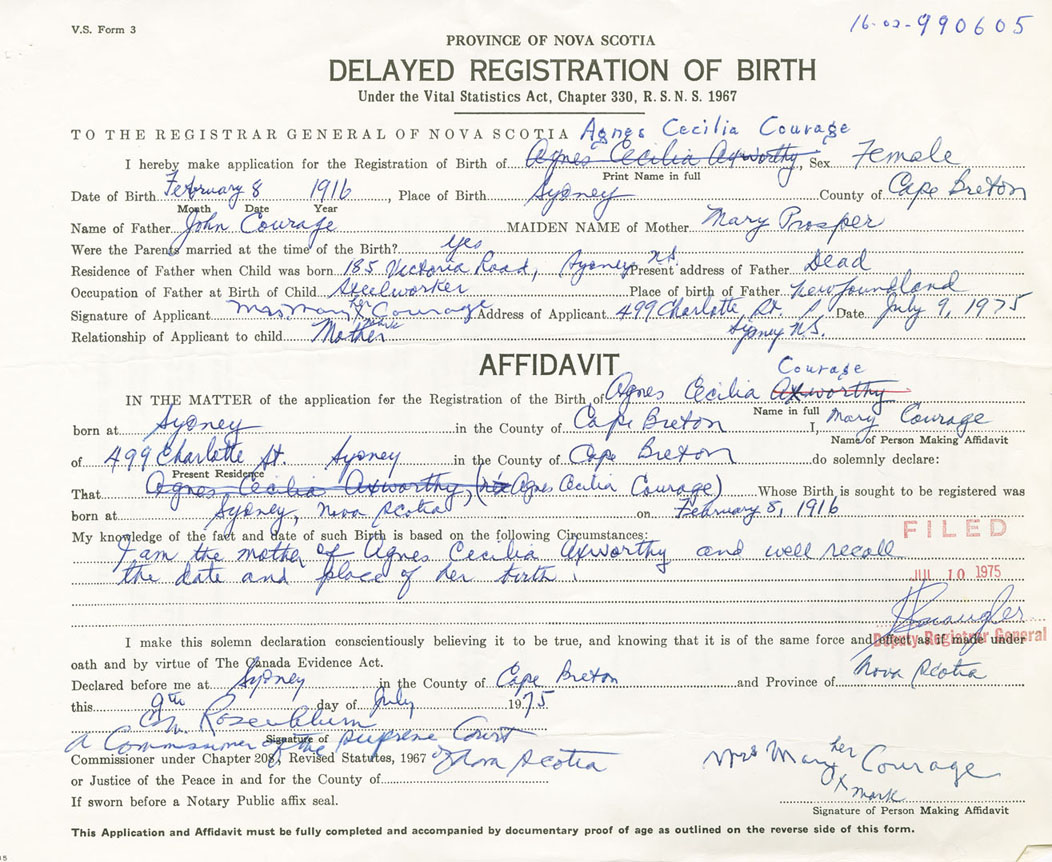 V.S. Form 3
16-02-990605
PROVINCE OF NOVA SCOTIA
DELAYED REGISTRATION OF BIRTH
Under the Vital Statistics Act, Chapter 330, R. S. N. S. 1967
TO THE REGISTRAR GENERAL OF NOVA SCOTIA Agnes Cecilia Courage
I hereby make application for the Registration of Birth of Agnes Cecilia Axworthy, Sex Female
Print Name in full
Date of Birth February 8 1916, Place of Birth Sydney County of Cape Breton
Month Date Year
Name of Father John Courage MAIDEN NAME of Mother Mary Prosper
Were the Parents married at the time of the Birth? Yes
Residence of Father when Child was born 185 Victoria Road, Sydney N.S. Present address of Father Dead
Occupation of Father at Birth of Child Steelworker Place of birth of Father Newfoundland
Signature of Applicant Mrs Mary her X mark Courage Address of Applicant 499 Charlotte St. Sydney N.S. Date July 9, 1975
Relationship of Applicant to child Mother
AFFIDAVIT
Courage
IN THE MATTER of the application for the Registration of the Birth of Agnes Cecilia Axworthy
Name in full
born at Sydney in the County of Cape Breton I, Mary Courage
Name of Person Making Affidavit
of 499 Charlotte St. Sydney in the County of Cape Breton do solemnly declare:
Present Residence
That Agnes Cecilia Axworthy, (Agnes Cecilia Courage) Whose Birth is sought to be registered was
born at Sydney, Nova Scotia on February 8, 1916
My knowledge of the fact and date of such Birth is based on the following Circumstances:
FILED
I am the mother of Agnes Cecilia Axworthy and well recall
the date and place of her birth.
JUL 10 1975
I make this solemn declaration conscientiously believing it to be true, and knowing that it is of the same force and effect as if made under
Deputy Registrar General
oath and by virtue of The Canada Evidence Act.
Declared before me at Sydney in the County of Cape Breton and Province of Nova Scotia
this 9th day of July 1975
Rosenblum
Signature of
A Commissioner of the Supreme Court
Commissioner under Chapter 208, Revised Statutes, 1967 of Nova Scotia
or Justice of the Peace in and for the County of
Mrs Mary her X mark Courage
If sworn before a Notary Public affix seal.
Signature of Person Making Affidavit
This Application and Affidavit must be fully completed and accompanied by documentary proof of age as outlined on the reverse side of this form.